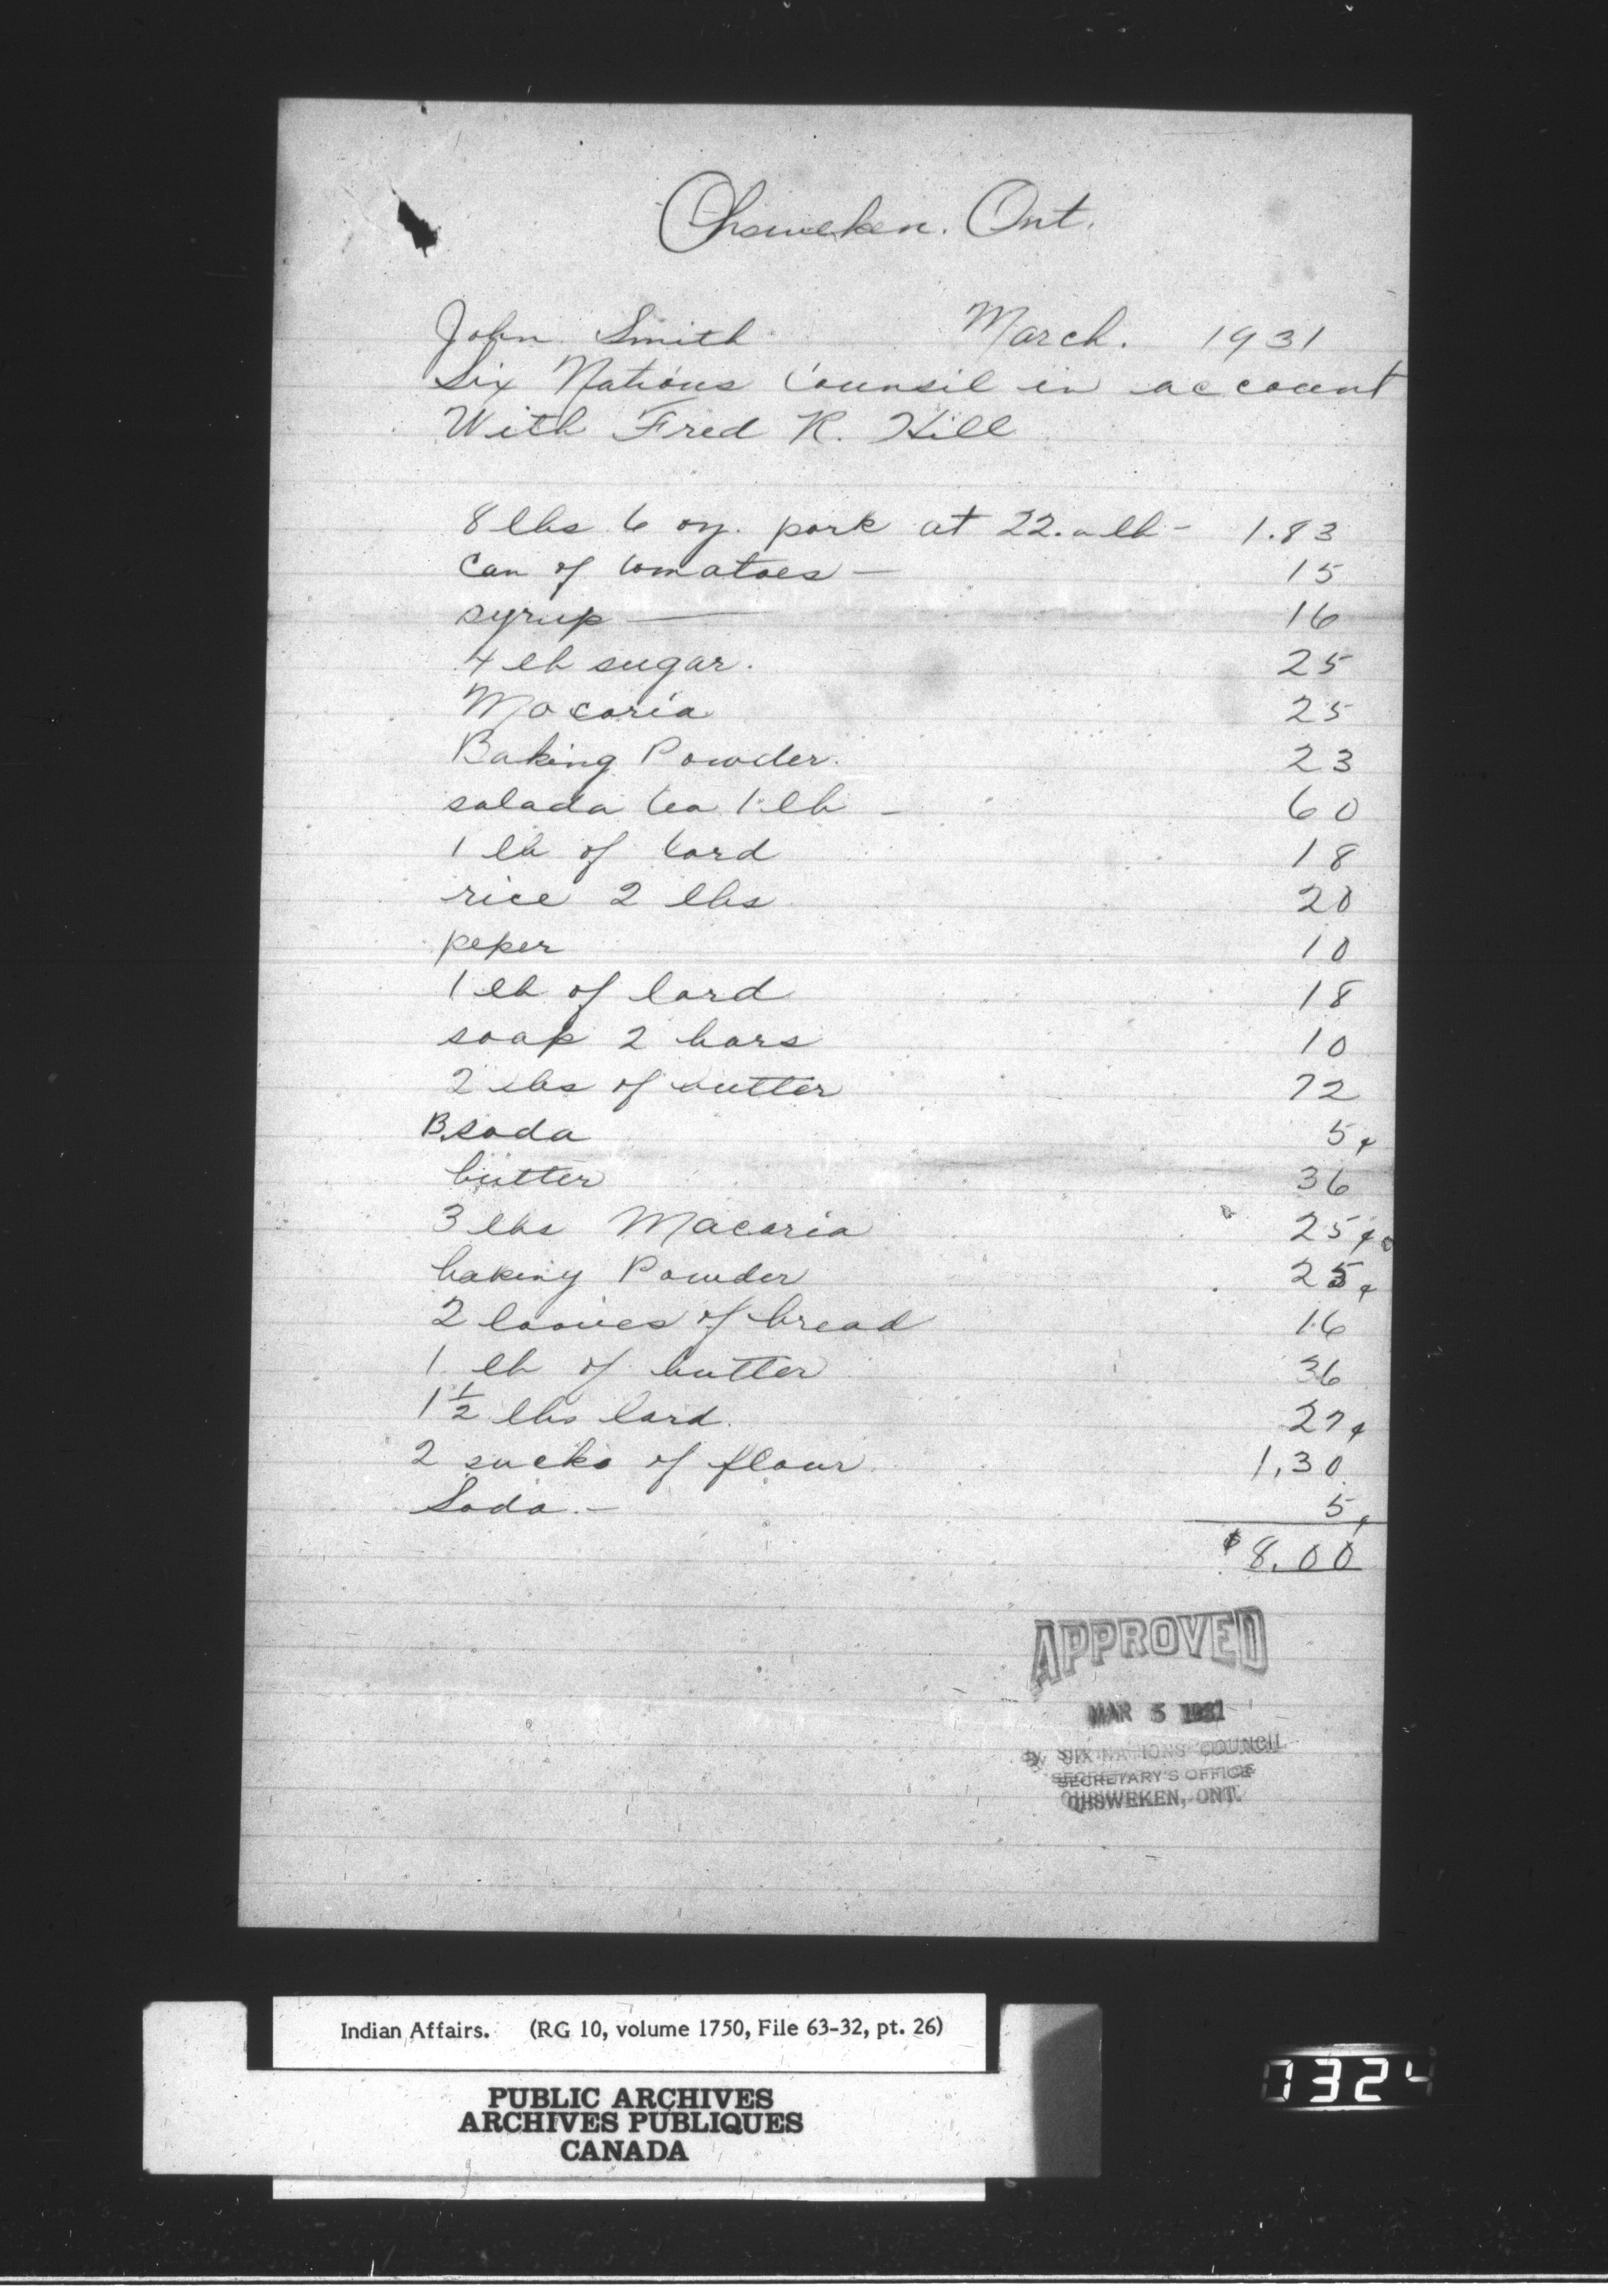 Ohsweken. Ont.
John Smith March. 1931
Six Nations Counsil in account
With Fred R. Hill
8 lbs 6 oz. pork at 22. a lb - 1.83
Can of tomatoes — 15
syrup — 16
4 lb sugar. 25
Macoria 25
Baking Powder. 23
salada tea 1 lb - 60
1 lb of lard 18
rice 2 lbs 20
peper 10
1 lb of lard 18
soap 2 bars 10
2 lbs of butter 72
B.soda 5¢
butter 36
3 lbs Macaria 25¢
baking Powder 25¢
2 loaves of bread 16
1 lb of butter 36
1½ lbs lard. 27¢
2 sacks of flour 1,30
Soda. - 5¢
$8.00
APPROVED
MAR 5 1931
By SIX NATIONS COUNCIL
SECRETARY'S OFFICE
OHSWEKEN, ONT.
Indian Affairs. (RG 10, volume 1750, File 63-32, pt. 26)
PUBLIC ARCHIVES
ARCHIVES PUBLIQUES
CANADA
0324